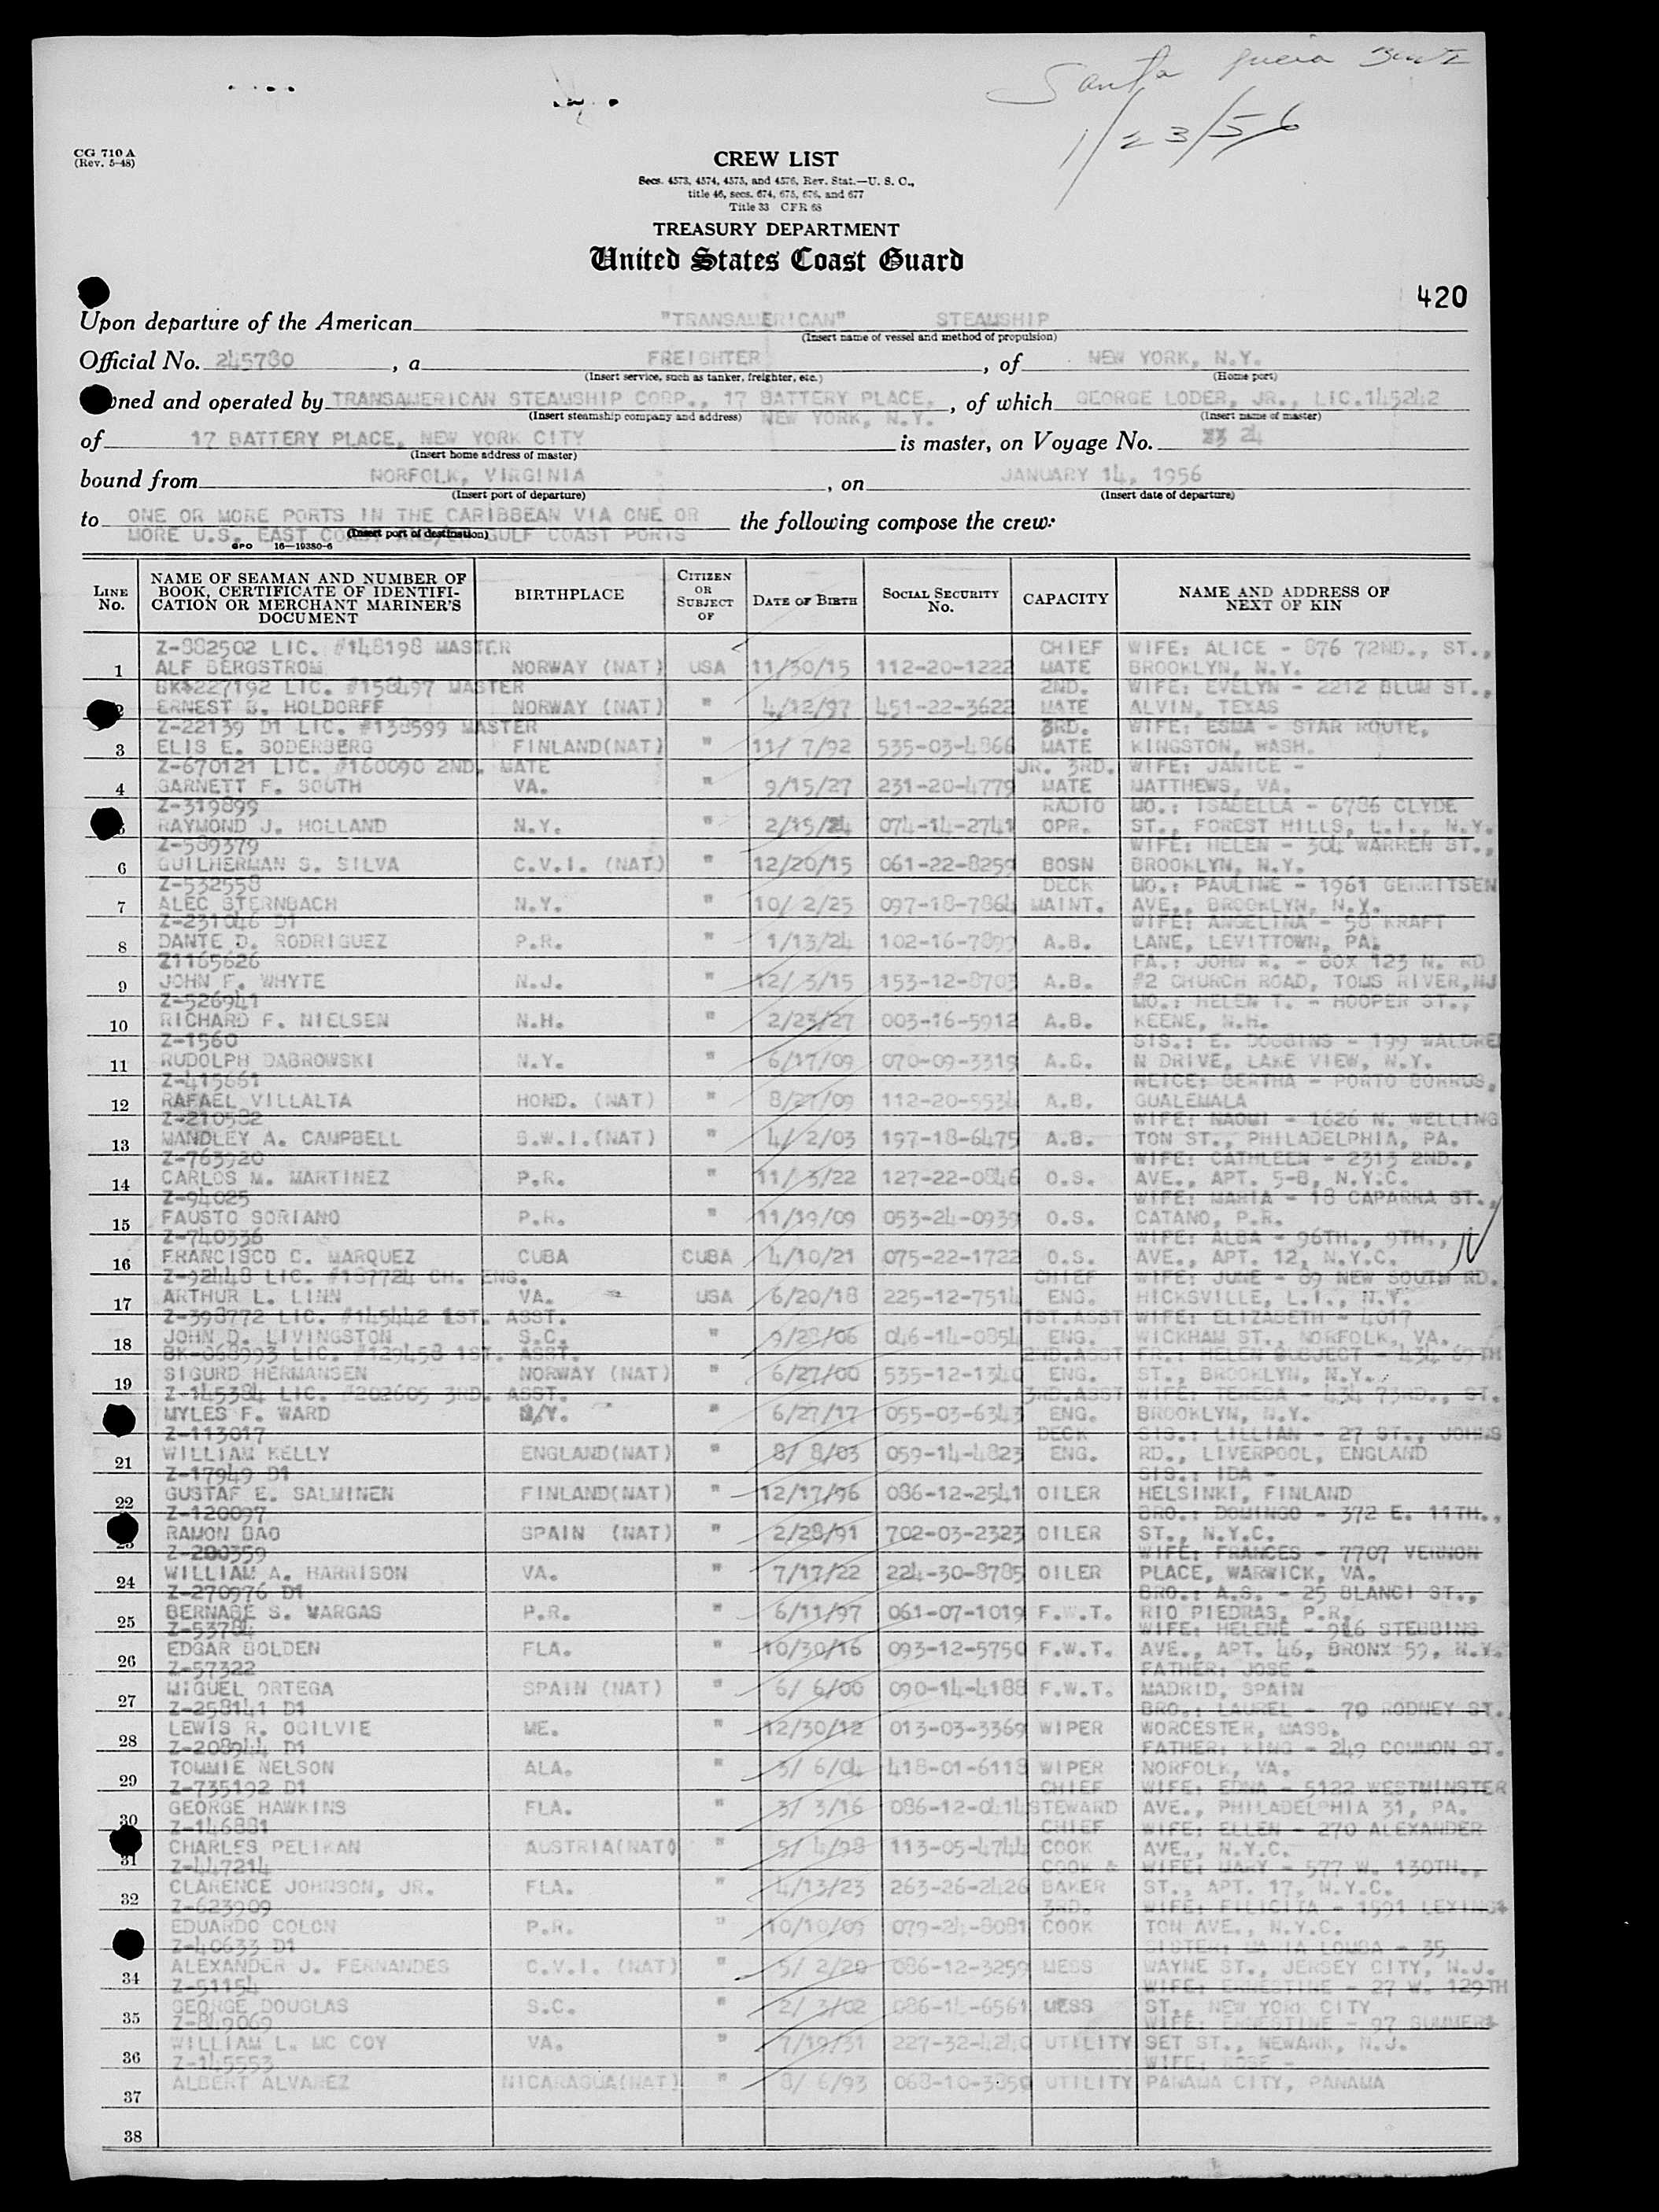 Santa
1/23/56
CG 710 A
(Rev. 5-48)
CREW LIST
Secs. 4573, 4574, 4575, and 4576, Rev. Stat.—U. S. C.,
title 46, secs. 674, 675, 676, and 677
Title 33 CFR 68
TREASURY DEPARTMENT
United States Coast Guard
420
Upon departure of the American "TRANSAMERICAN" STEAMSHIP
(Insert name of vessel and method of propulsion)
Official No. 245780, a FREIGHTER, of NEW YORK, N.Y.
(Insert service, such as tanker, freighter, etc.) (Home port)
ned and operated by TRANSAMERICAN STEAMSHIP CORP., 17 BATTERY PLACE, of which GEORGE LODER, JR., LIC.145242
(Insert steamship company and address) NEW YORK, N.Y. (Insert name of master)
of 17 BATTERY PLACE, NEW YORK CITY is master, on Voyage No. 24
(Insert home address of master)
bound from NORFOLK, VIRGINIA, on JANUARY 14, 1956
(Insert port of departure) (Insert date of departure)
to ONE OR MORE PORTS IN THE CARIBBEAN VIA ONE OR the following compose the crew:
MORE U.S. EAST COAST AND/OR GULF COAST PORTS
(Insert port of destination)
GPO 16—19380-6
LINE No. NAME OF SEAMAN AND NUMBER OF BOOK, CERTIFICATE OF IDENTIFICATION OR MERCHANT MARINER'S DOCUMENT BIRTHPLACE CITIZEN OR SUBJECT OF DATE OF BIRTH SOCIAL SECURITY No. CAPACITY NAME AND ADDRESS OF NEXT OF KIN
Z-882502 LIC. #148198 MASTER CHIEF WIFE: ALICE - 876 72ND., ST.,
1 ALF BERGSTROM NORWAY (NAT) USA 11/30/15 112-20-1222 MATE BROOKLYN, N.Y.
BK#227192 LIC. #158497 MASTER 2ND. WIFE: EVELYN - 2212 BLUM ST.,
2 ERNEST B. HOLDORFF NORWAY (NAT) " 4/12/97 451-22-3622 MATE ALVIN, TEXAS
Z-22139 D1 LIC. #138599 MASTER 3RD. WIFE: ESMA - STAR ROUTE,
3 ELIS E. SODERBERG FINLAND(NAT) " 11/ 7/92 535-03-4866 MATE KINGSTON, WASH.
Z-670121 LIC. #160090 2ND. MATE JR. 3RD. WIFE: JANICE -
4 GARNETT F. SOUTH VA. " 9/15/27 231-20-4779 MATE MATTHEWS, VA.
Z-319899 RADIO MO.: ISABELLA - 6786 CLYDE
RAYMOND J. HOLLAND N.Y. " 2/15/24 074-14-2741 OPR. ST., FOREST HILLS, L.I., N.Y.
Z-589379 WIFE: HELEN - 304 WARREN ST.,
6 GUILHERMAN S. SILVA C.V.I. (NAT) " 12/20/15 061-22-8259 BOSN BROOKLYN, N.Y.
Z-532558 DECK MO.: PAULINE - 1961 GERRITSEN
7 ALEC STERNBACH N.Y. " 10/ 2/25 097-18-7864 MAINT. AVE., BROOKLYN, N.Y.
Z-231046 D1 WIFE: ANGELINA - 58 KRAFT
8 DANTE D. RODRIGUEZ P.R. " 1/13/24 102-16-7899 A.B. LANE, LEVITTOWN, PA.
Z1165626 FA.: JOHN R. - BOX 123 N. RD
9 JOHN F. WHYTE N.J. " 12/ 3/15 153-12-8703 A.B. #2 CHURCH ROAD, TOMS RIVER,NJ
Z-526941 MO.: HELEN T. - HOOPER ST.,
10 RICHARD F. NIELSEN N.H. " 2/23/27 003-16-5912 A.B. KEENE, N.H.
Z-1560 SIS.: E. DOBBINS - 199
11 RUDOLPH DABROWSKI N.Y. " 6/17/09 070-09-3319 A.B. N DRIVE, LAKE VIEW, N.Y.
Z-415661 NEICE: BERTHA - PORTO BORRUS,
12 RAFAEL VILLALTA HOND. (NAT) " 8/27/09 112-20-5534 A.B. GUALEMALA
Z-210582 WIFE: NAOMI - 1626 N. WELLING
13 MANDLEY A. CAMPBELL B.W.I.(NAT) " 4/ 2/03 197-18-6475 A.B. TON ST., PHILADELPHIA, PA.
Z-763920 WIFE: CATHLEEN - 2313 2ND.,
14 CARLOS M. MARTINEZ P.R. " 11/ 3/22 127-22-0846 O.S. AVE., APT. 5-B, N.Y.C.
Z-94025 WIFE: MARIA - 18 CAPARRA ST.,
15 FAUSTO SORIANO P.R. " 11/19/09 053-24-0939 O.S. CATANO, P.R.
Z-740336 WIFE: ALBA - 96TH., 9TH.,
16 FRANCISCO C. MARQUEZ CUBA CUBA 4/10/21 075-22-1722 O.S. AVE., APT. 12, N.Y.C.
Z-92448 LIC. #187724 CH. ENG. CHIEF WIFE: JUNE - 89 NEW SOUTH RD.
17 ARTHUR L. LINN VA. USA 6/20/18 225-12-7514 ENG. HICKSVILLE, L.I., N.Y.
Z-398772 LIC. #145442 1ST. ASST. 1ST.ASST WIFE: ELIZABETH - 4017
18 JOHN D. LIVINGSTON S.C. " 9/28/06 046-14-0854 ENG. WICKHAM ST., NORFOLK, VA.
BK-068993 LIC. #129458 1ST. ASST. 2ND.ASST FR.: HELEN SUBJECT - 434 69TH
19 SIGURD HERMANSEN NORWAY (NAT) " 6/27/00 535-12-1340 ENG. ST., BROOKLYN, N.Y.
Z-145384 LIC. #202605 3RD. ASST. 3RD.ASST WIFE: TERESA - 434 73RD., ST.
MYLES F. WARD N.Y. " 6/27/17 055-03-6343 ENG. BROOKLYN, N.Y.
Z-113017 DECK SIS.: LILLIAN - 27 ST., JOHNS
21 WILLIAM KELLY ENGLAND(NAT) " 8/ 8/03 059-14-4823 ENG. RD., LIVERPOOL, ENGLAND
Z-17949 D1 SIS.: IDA -
22 GUSTAF E. SALMINEN FINLAND(NAT) " 12/17/96 086-12-2541 OILER HELSINKI, FINLAND
Z-120097 BRO.: DOMINGO - 372 E. 11TH.,
23 RAMON BAO SPAIN (NAT) " 2/28/91 702-03-2323 OILER ST., N.Y.C.
Z-200359 WIFE: FRANCES - 7707 VERNON
24 WILLIAM A. HARRISON VA. " 7/17/22 224-30-8785 OILER PLACE, WARWICK, VA.
Z-270976 D1 BRO.: A.S. - 25 BLANCI ST.,
25 BERNABE S. VARGAS P.R. " 6/11/97 061-07-1019 F.W.T. RIO PIEDRAS, P.R.
Z-53784 WIFE: HELENE - 916 STEBBINS
26 EDGAR BOLDEN FLA. " 10/30/16 093-12-5750 F.W.T. AVE., APT. 46, BRONX 59, N.Y.
Z-57322 FATHER: JOSE -
27 MIGUEL ORTEGA SPAIN (NAT) " 6/ 6/00 090-14-4188 F.W.T. MADRID, SPAIN
Z-258141 D1 BRO.: LAUREL - 70 RODNEY ST.,
28 LEWIS R. OGILVIE ME. " 12/30/12 013-03-3369 WIPER WORCESTER, MASS.
Z-208944 D1 FATHER: KING - 249 COMMON ST.
29 TOMMIE NELSON ALA. " 3/ 6/04 418-01-6118 WIPER NORFOLK, VA.
Z-735192 D1 CHIEF WIFE: EDNA - 5122 WESTMINSTER
30 GEORGE HAWKINS FLA. " 3/ 3/16 086-12-0414 STEWARD AVE., PHILADELPHIA 31, PA.
Z-146881 CHIEF WIFE: ELLEN - 270 ALEXANDER
31 CHARLES PELIKAN AUSTRIA(NAT) " 5/ 4/98 113-05-4744 COOK AVE., N.Y.C.
Z-447214 COOK & WIFE: MARY - 577 W. 130TH.,
32 CLARENCE JOHNSON, JR. FLA. " 4/13/23 263-26-2426 BAKER ST., APT. 17, N.Y.C.
Z-623909 3RD. WIFE: FILICITA - 1591 LEXING
EDUARDO COLON P.R. " 10/10/09 079-24-8081 COOK TON AVE., N.Y.C.
Z-40633 D1 SISTER: MARIA LOMBA - 35
34 ALEXANDER J. FERNANDES C.V.I. (NAT) " 5/ 2/20 086-12-3259 MESS WAYNE ST., JERSEY CITY, N.J.
Z-51154 WIFE: ERNESTINE - 27 W. 129TH
35 GEORGE DOUGLAS S.C. " 2/ 3/02 086-14-6561 MESS ST., NEW YORK CITY
Z-849069 WIFE: ERNESTINE - 97 SUMMER
36 WILLIAM L. MC COY VA. " 7/19/31 227-32-4240 UTILITY SET ST., NEWARK, N.J.
Z-145553 WIFE: ROSE -
37 ALBERT ALVAREZ NICARAGUA(NAT) " 8/ 6/93 068-10-3859 UTILITY PANAMA CITY, PANAMA
38